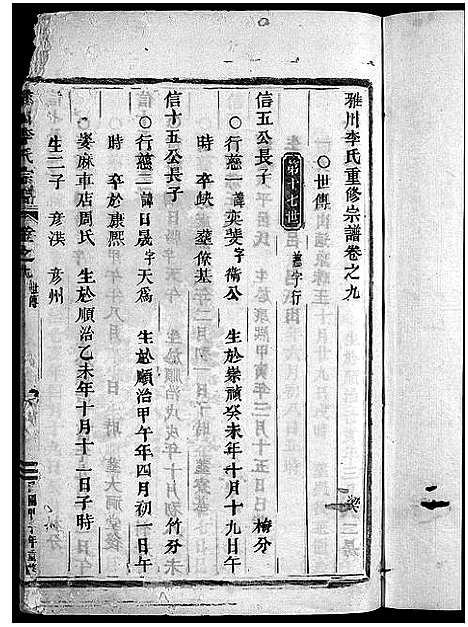 雅川李氏重修宗譜卷之九
〇世傳
第十七世 慈字行
信五公長子 梅分
〇行慈一諱奕斐字衛公 生於崇禎癸未年十月十九日午
時 卒缺 塟傢基
信十五公長子 竹分
〇行慈二諱日晟字天爲 生於順治甲午年四月初一日午
時 卒於康熙
娶麻車店周氏 生於順治乙未年十月十一日子時
生二子 彦淇 彦州
李氏宗譜 卷之九 世傳 一